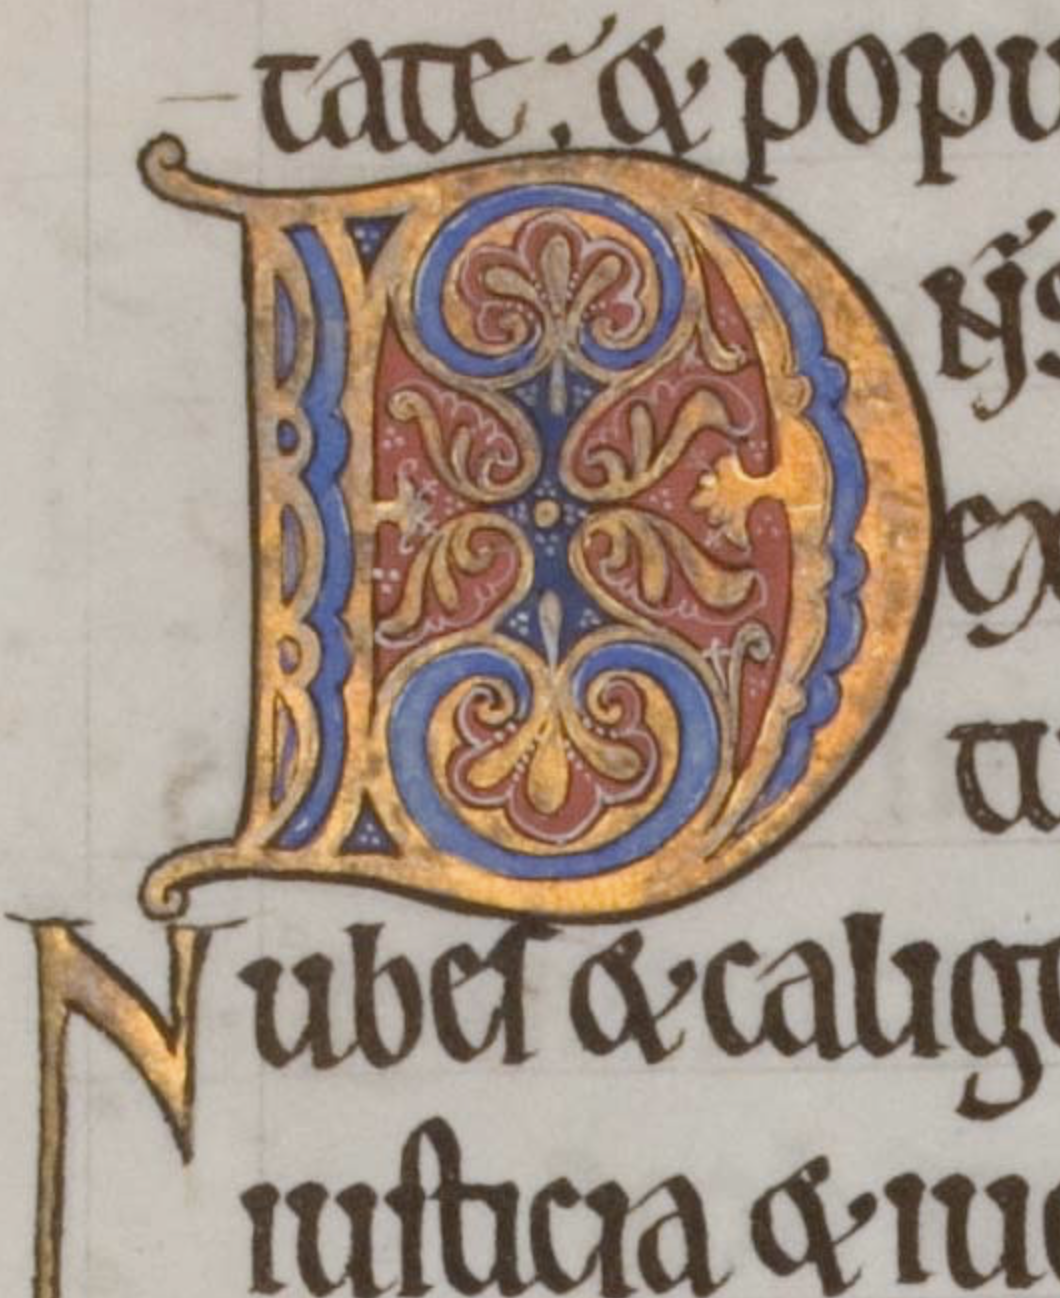 tate; & popu
D n̄s
ex
u
Nubeſ & calig
iuſticia & iu